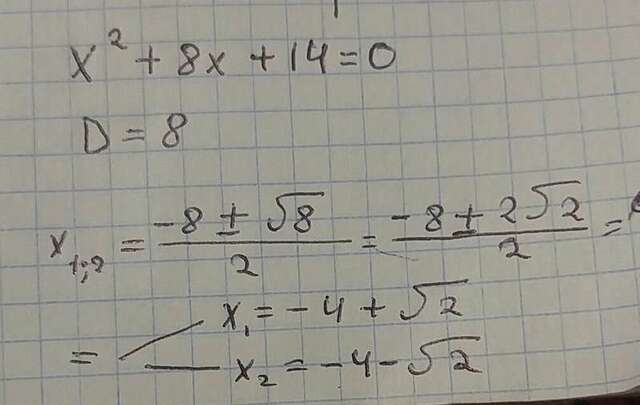 x² + 8x + 14 = 0
D = 8
x₁;₂ = (-8 ± √8)/2 = (-8 ± 2√2)/2 =
x₁ = -4 + √2
= x₂ = -4 - √2